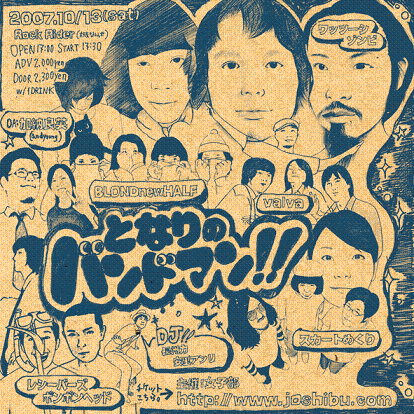 2007.10/13(sat)
Rock Rider
OPEN 13:00 START 13:30
ADV 2,000yen
DOOR 2,300yen
w/1DRINK
ワッツーシ
ゾンビ
OA:加納良英
(andymori)
BLONDnewHALF
valva
となりの
バンドマン!!
DJ
スカートめくり
レシーバーズ
ボンボンヘッド
チケット
こちら
主催:女子部
http://www.joshibu.com